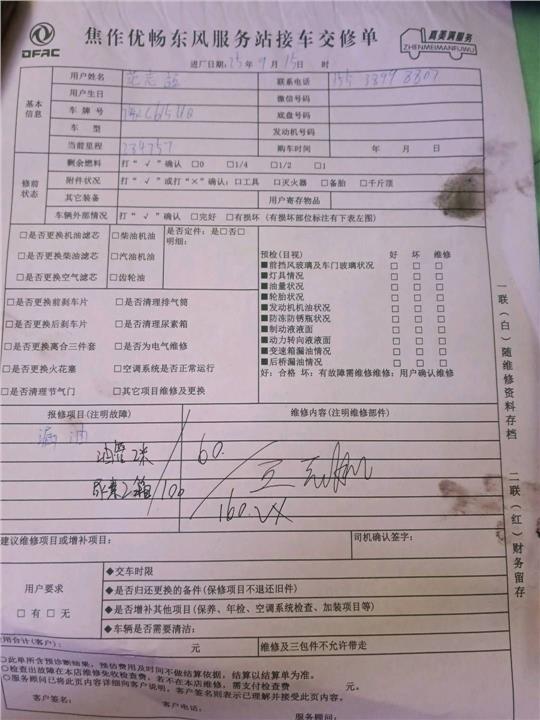 DFAC
焦作优畅东风服务站接车交修单
真美满服务
ZHENMEIMANFUWU
进厂日期: 25年9月15日 时
基本信息
用户姓名
联系电话
用户生日
微信号码
车牌号
底盘号码
车型
发动机号码
当前里程 234757
购车时间 年 月 日
修前状态
剩余燃料 打“√”确认 □0 □1/4 □1/2 □1
附件状况 打“√”或打“×”确认: □工具 □灭火器 □备胎 □千斤顶
其它装备
用户寄存物品
车辆外部情况 打“√”确认 □完好 □有损坏 (有损坏部位标注有下表左图)
□是否更换机油滤芯 □柴油机油 是否定件: 是□否□
□是否更换柴滤芯 □汽油机油 明细:
□是否更换空气滤芯 □齿轮油
预检(目视) 好 坏 维修
■前挡风玻璃及车门玻璃状况 □ □ □
■灯具情况 □ □ □
■油量状况 □ □ □
■轮胎状况 □ □ □
■发动机机油状况 □ □ □
■防冻防锈瓶状况 □ □ □
■制动液液面 □ □ □
■动力转向液液面 □ □ □
■变速箱漏油情况 □ □ □
■后桥漏油情况 □ □ □
好: 合格 坏: 有故障需维修维修: 用户确认维修
□是否更换前刹车片 □是否清理排气筒
□是否更换后刹车片 □是否清理尿素箱
□是否更换离合三件套 □是否为电气维修
□是否更换火花塞 □空调系统是否正常运行
□是否清理节气门 □其它项目维修及更换
报修项目(注明故障)
维修内容(注明维修部件)
漏油
油管2米 60.
尿素2箱 100
160.
建议维修项目或增补项目:
司机确认签字:
用户要求
□有 □无
◆交车时限
◆是否归还更换的备件(保修项目不退还旧件)
◆是否增补其他项目(保养、年检、空调系统检查、加装项目等)
◆车辆是否需要清洁:
费用合计(客户): 元
维修及三包件不允许带走
○此单所含预诊断结果, 预估费用及时间不做结算依据, 结算以结算单为准。
○检查出故障在本店维修免收检查费, 若不在本店维修, 需支付检查费 元。
○服务顾问已将此页内容详细向客户说明, 客户签名则表示已理解并接受此页内容。
客户签名:
客户签名:
服务顾问:
一联(白)随维修资料存档
二联(红)财务留存